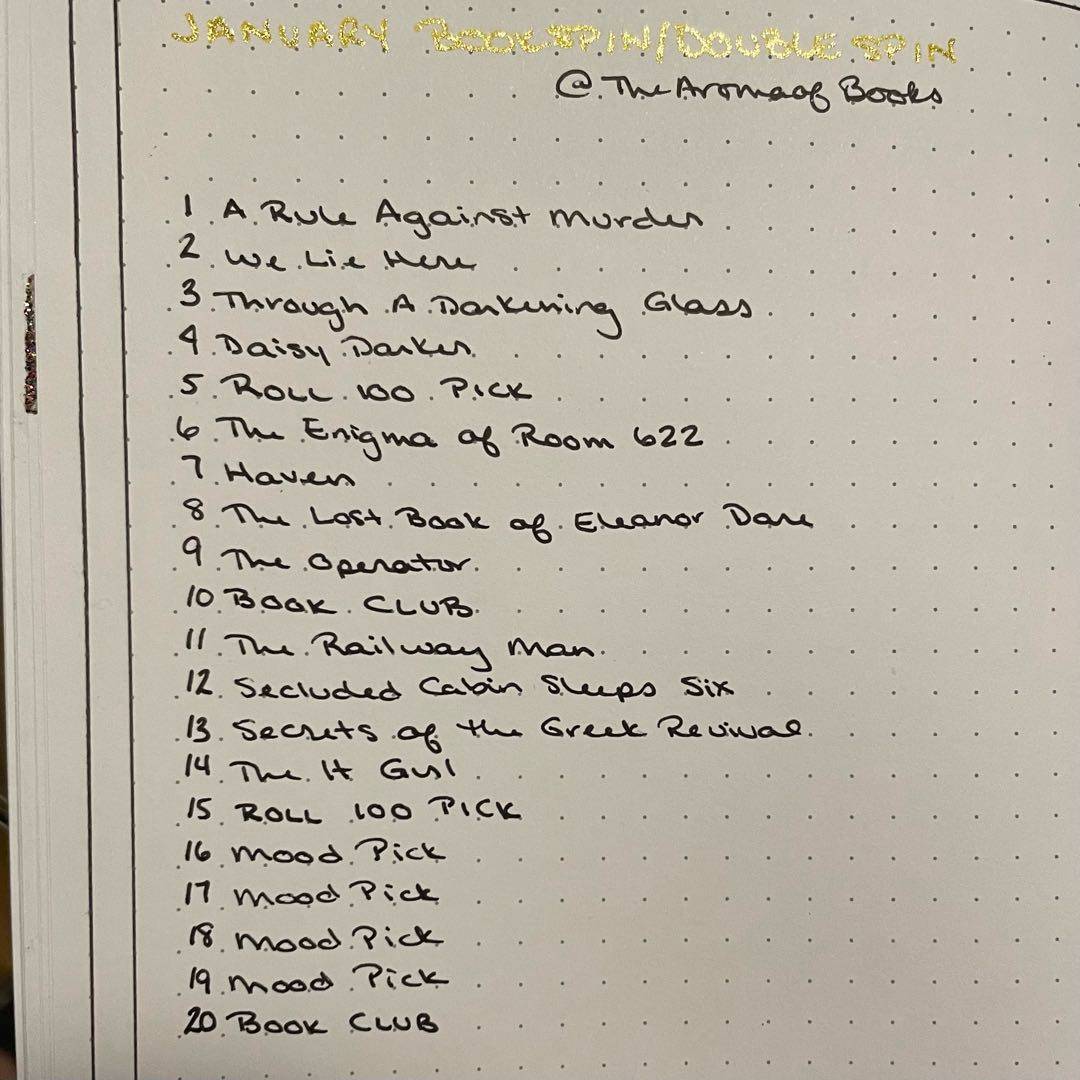 JANUARY BOOKSPIN/DOUBLE SPIN
@TheAromaofBooks
1 A Rule Against Murder
2 We Lie Here
3 Through A Darkening Glass
4 Daisy Darker
5 ROLL 100 PICK
6 The Enigma of Room 622
7 Haven
8 The Lost Book of Eleanor Dare
9 The Operator
10 BOOK CLUB
11 The Railway Man
12 Secluded Cabin Sleeps Six
13 Secrets of the Greek Revival
14 The It Girl
15 ROLL 100 PICK
16 Mood Pick
17 Mood Pick
18 Mood Pick
19 Mood Pick
20 BOOK CLUB